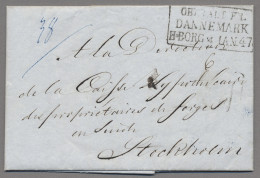 38
DANNEMARK
H·BORG 4 JAN. 47
A la Direction
de la Caisse Hypothécaire
des propriétaires de forges
en Suède
Stockholm